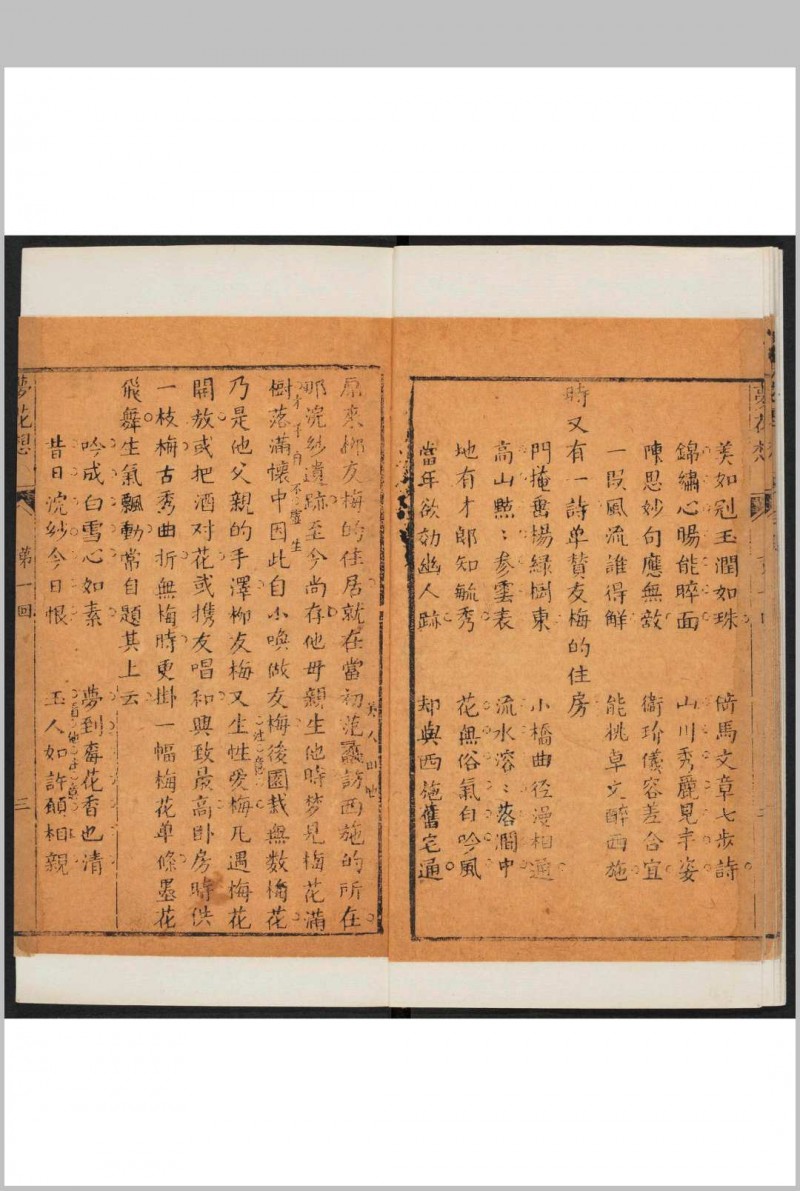 美如冠玉潤如珠　倚馬文章七步詩
錦繡心腸能睟面　山川秀麗見丰姿
陳思妙句應無敵　衞玠儀容差合宜
一段風流誰得解　能挑卓文醉西施
時又有一詩单賛友梅的住房
門掩畨楊緑樹東　小橋曲徑漫相通
高山黙：参雲表　流水溶：落澗中
地有才郎知毓秀　花無俗氣自吟風
當年欲効幽人跡　却與西施舊宅通
原来柳友梅的住居就在當初范蠡訪西施的所在
那浣紗遺跡至今尚存他母親生他時梦見梅花滿
樹落滿懷中因此自小喚做友梅後園栽無数梅花
乃是他父親的手澤柳友梅又生性愛梅凡遇梅花
開放或把酒对花或携友唱和興致最高卧房時供
一枝梅古秀曲折無梅時更掛一幅梅花单條墨花
飛舞生氣飄動常自題其上云
吟成白雪心如素　夢到梅花香也清
昔日浣紗今日恨　玉人如許願相親
夢花想
第一回
三